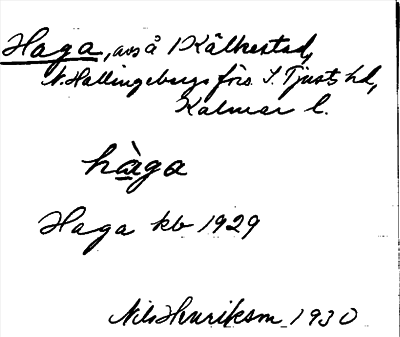 Haga, avs å 1 Kälkestad,
N. Hallingebergs förs. S. Tjusts hd,
Kalmar l.
hàga
Haga kb 1929
Nils Henrikson 1930